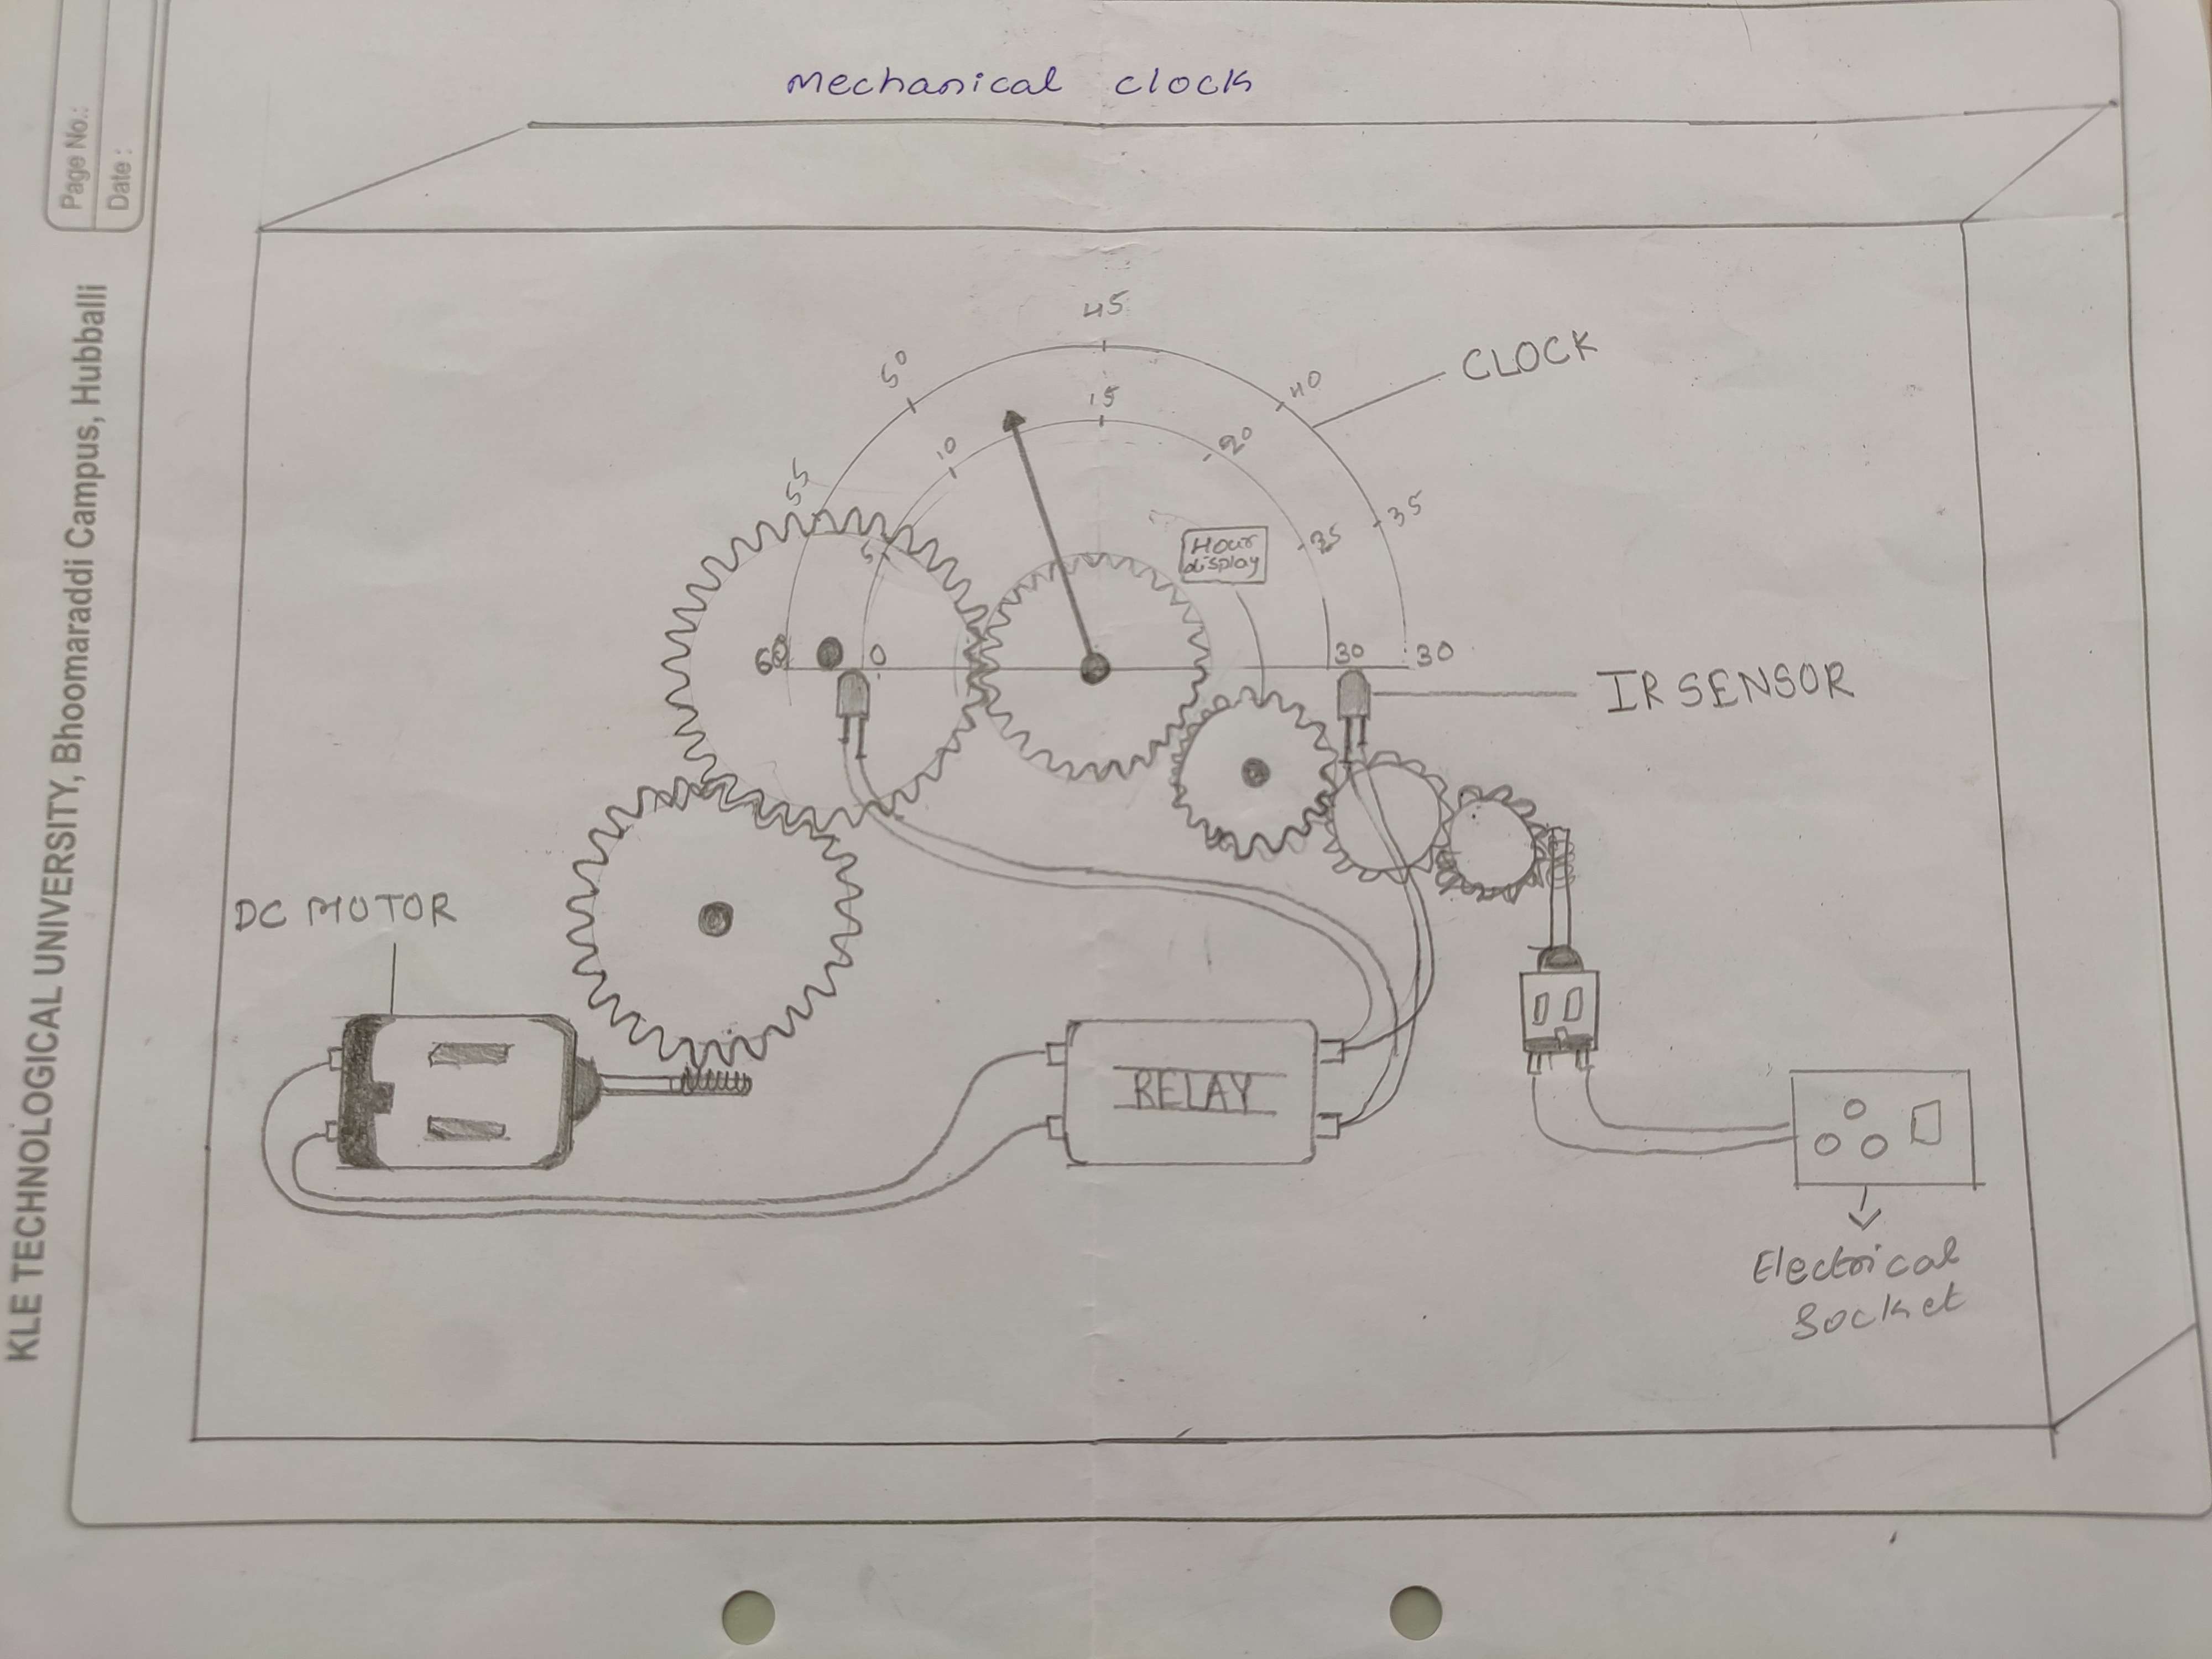 Page No.:
Date :
KLE TECHNOLOGICAL UNIVERSITY, Bhoomaraddi Campus, Hubballi
mechanical clock
45
50
40
CLOCK
15
10
20
55
35
5
25
Hour
display
60
0
30
30
IR SENSOR
DC MOTOR
RELAY
Electrical
Socket